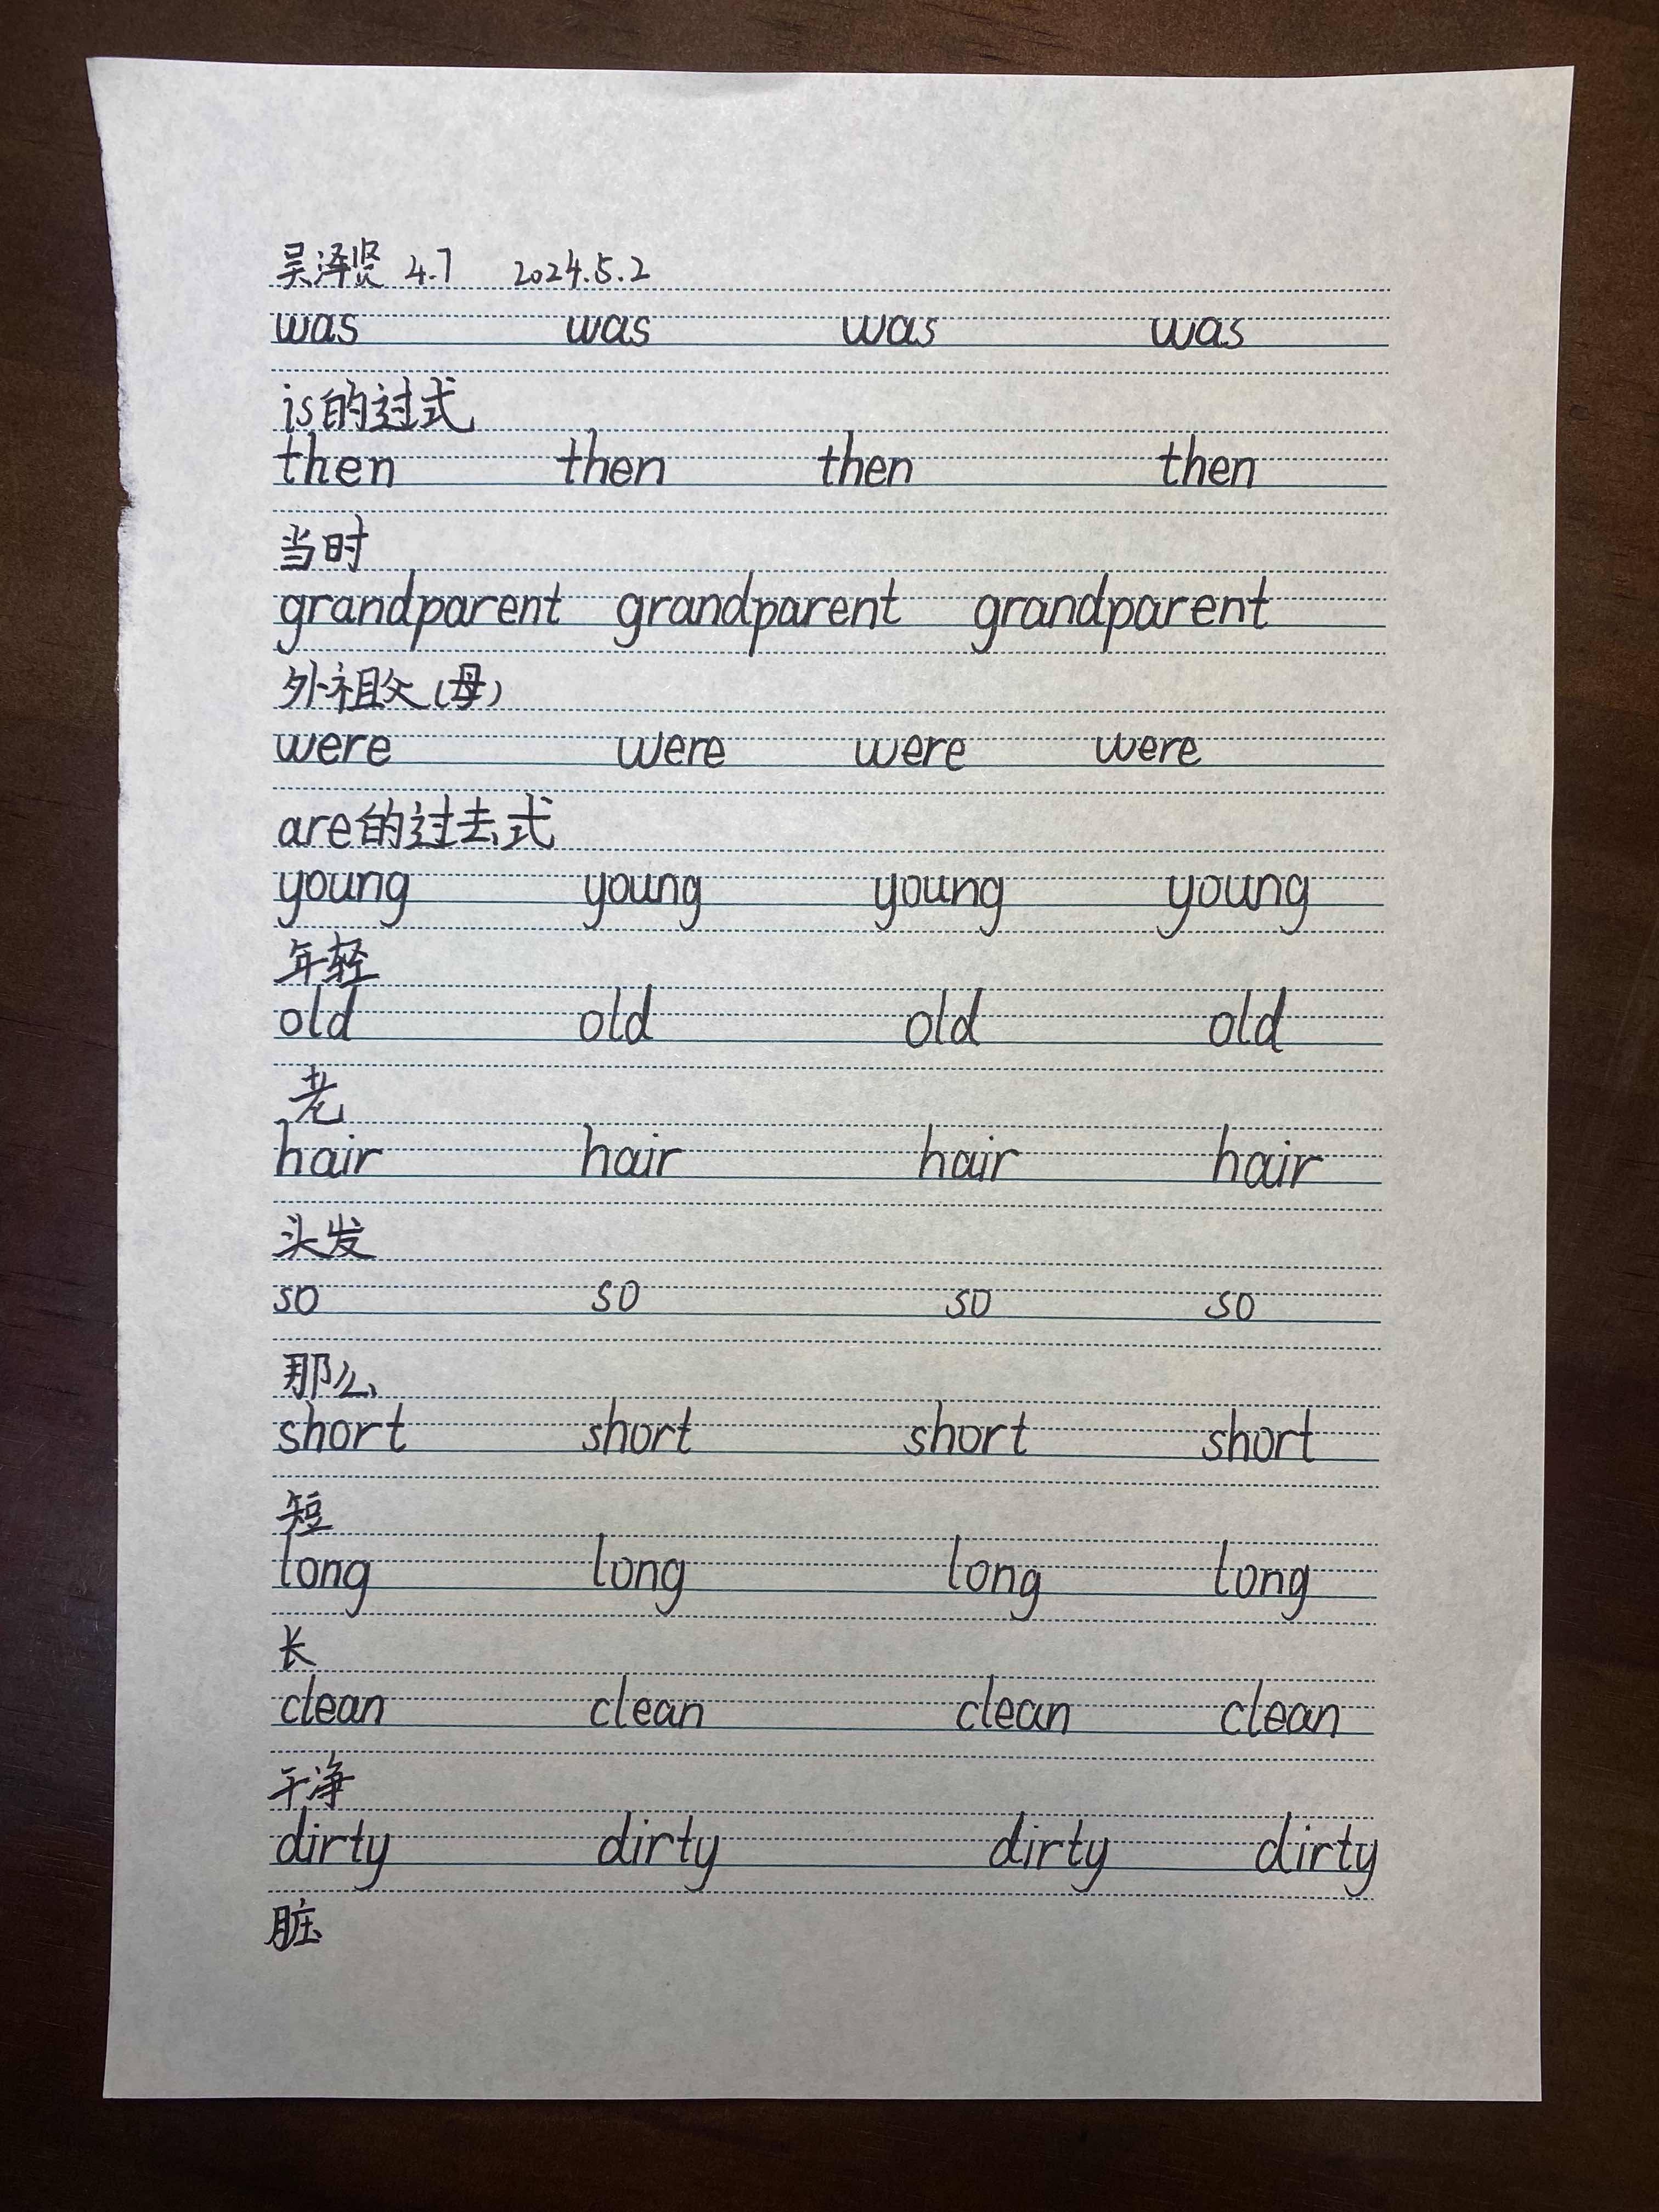 吴泽贤 4.7 2024.5.2
was was was was
is的过式
then then then then
当时
grandparent grandparent grandparent
外祖父(母)
were were were were
are的过去式
young young young young
年轻
old old old old
老
hair hair hair hair
头发
so so so so
那么
short short short short
短
long long long long
长
clean clean clean clean
干净
dirty dirty dirty dirty
脏